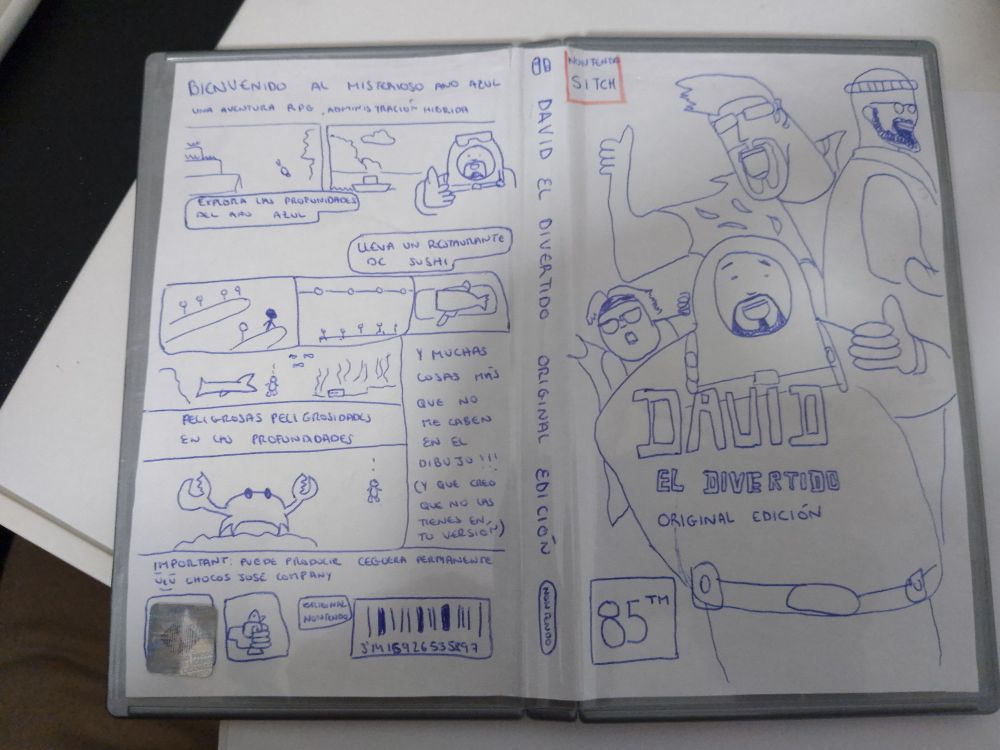 BIENVENIDO AL MISTERIOSO ANO AZUL
UNA AVENTURA RPG, ADMINISTRACIÓN HIBRIDA
EXPLORA LAS PROFUNIDADES
DEL ANO AZUL
LLEVA UN RESTAURANTE
DE SUSHI
PELIGROSAS PELIGROSIDADES
EN LAS PROFUNDIDADES
Y MUCHAS
COSAS MÁS
QUE NO
ME CABEN
EN EL
DIBUJO!!!
(Y QUE CREO
QUE NO LAS
TIENES EN
TU VERSIÓN)
IMPORTANT: PUEDE PRODUCIR CEGUERA PERMANENTE
CHOCOS JOSÉ COMPANY
ORIGINAL
NONTENDO
DAVID EL DIVERTIDO ORIGINAL EDICIÓN
NONTENDO
NONTENDO
SITCH
DAVID
EL DIVERTIDO
ORIGINAL EDICIÓN
85™